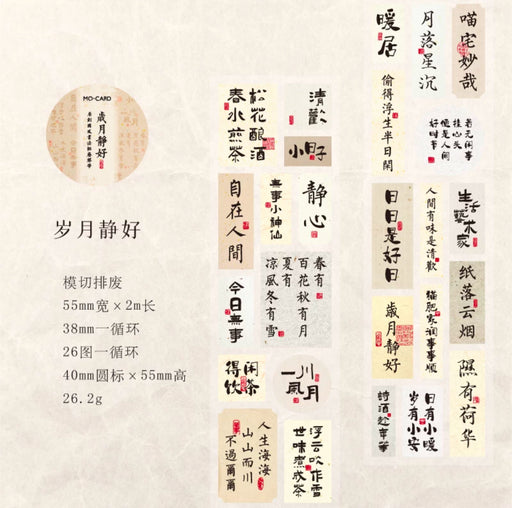 MO·CARD
歲月靜好
岁月静好
模切排废
55mm宽×2m长
38mm一循环
26图一循环
40mm圆标×55mm高
26.2g
松花酿酒
春水煎茶
清歡
小日子
自在人間
無事小神仙
静心
今日無事
春有
百花秋有月
夏有
凉風冬有雪
闲茶
得饮
一川風月
人生海海
山山而川
不過爾爾
浮云吹作雪
世味煮成茶
暖居
月落星沉
喵宅妙哉
偷得浮生半日閒
若无闲事
挂心头
便是人间
好时节
日日是好日
人間有味是清歡
生活藝术家
纸落云烟
歲月靜好
猫肥家润事事顺
隰有荷华
詩酒趁年華
日有小暖
岁有小安